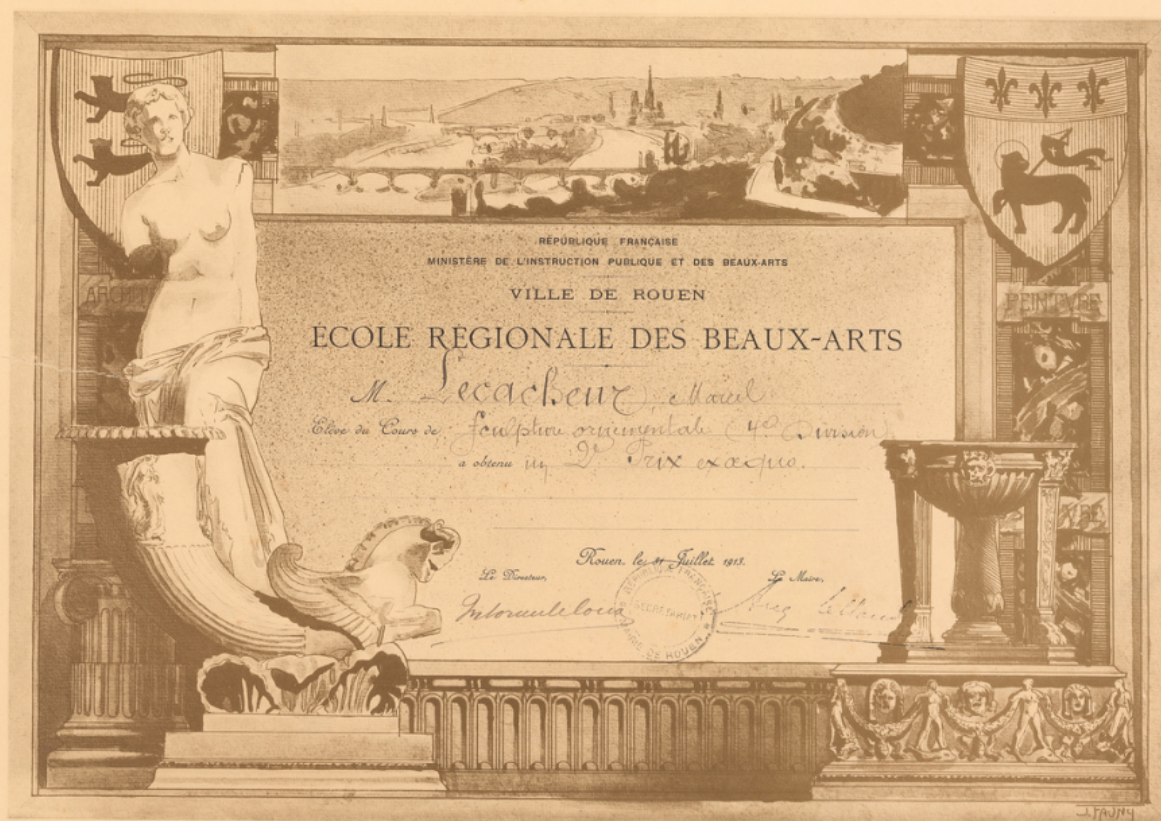 RÉPUBLIQUE FRANÇAISE
MINISTÈRE DE L'INSTRUCTION PUBLIQUE ET DES BEAUX-ARTS
VILLE DE ROUEN
ÉCOLE RÉGIONALE DES BEAUX-ARTS
M. Lecacheux, Marcel
Elève du Cours de Sculpture ornementale (4e Division)
a obtenu un 2e Prix ex æquo.
Rouen, le 31 Juillet 1913.
Le Directeur, Le Maire,
RÉPUBLIQUE FRANÇAISE
MAIRIE DE ROUEN
ARCHIT
PEINTVRE